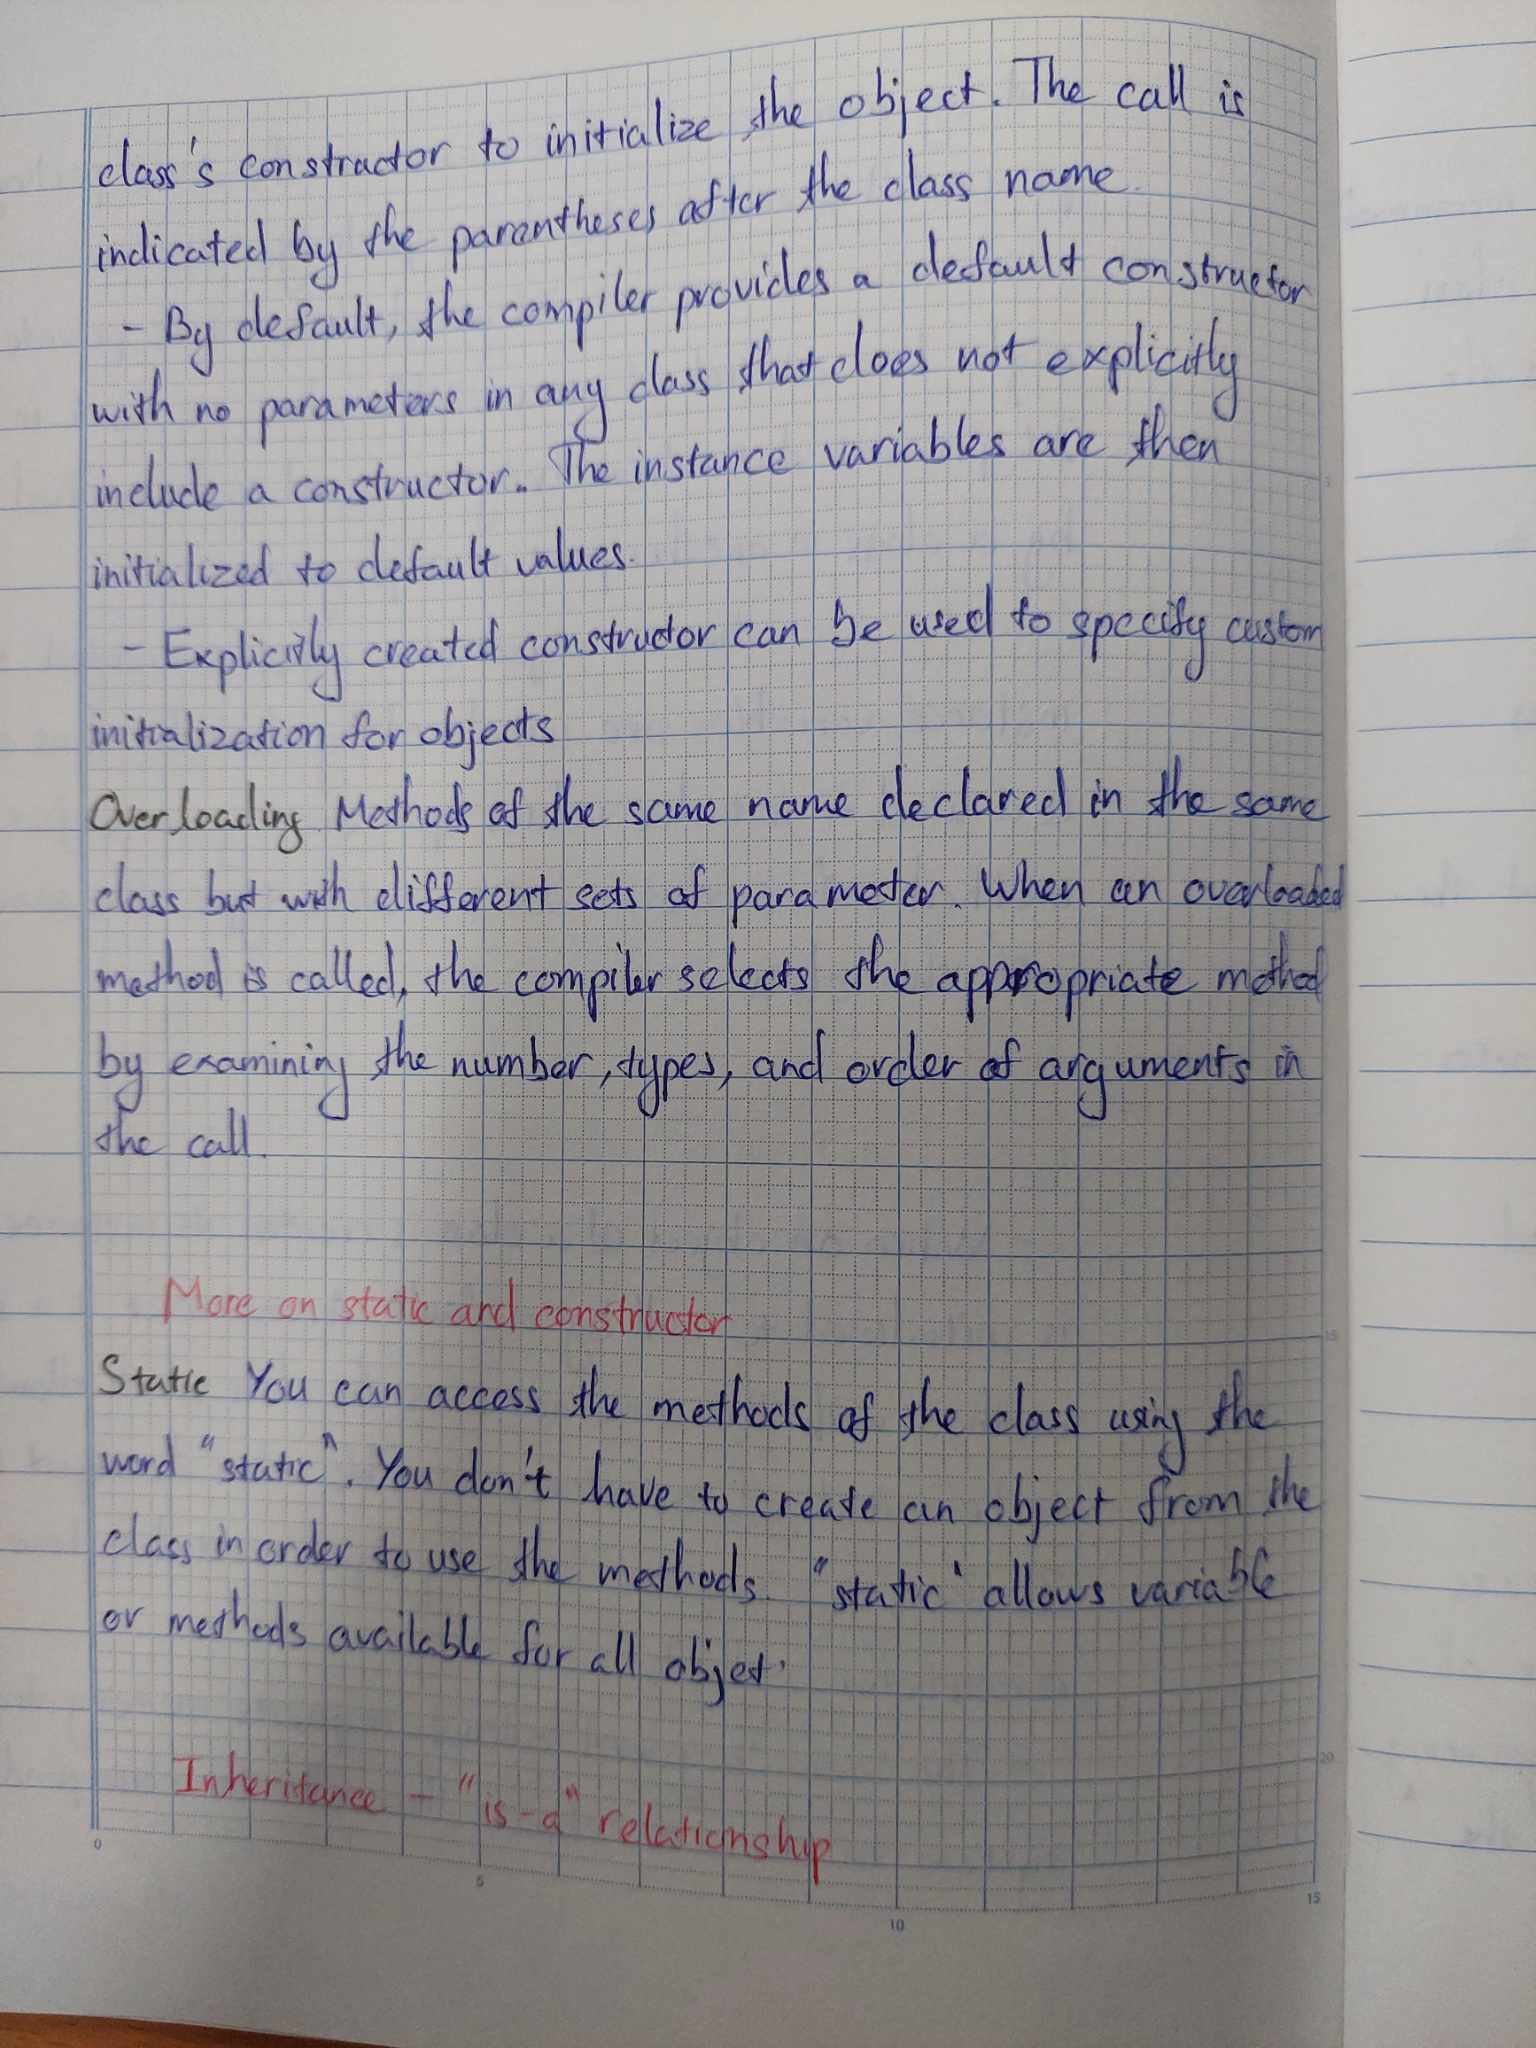 class's constructor to initialize the object. The call is
indicated by the parentheses after the class name.
- By default, the compiler provides a default constructor
with no parameters in any class that does not explicitly
include a constructor. The instance variables are then
initialized to default values.
- Explicitly created constructor can be used to specify custom
initialization for objects
Overloading Methods of the same name declared in the same
class but with different sets of parameter. When an overloaded
method is called, the compiler selects the appropriate method
by examining the number, types, and order of arguments in
the call.
More on static and constructor
Static You can access the methods of the class using the
word "static". You don't have to create an object from the
class in order to use the methods. "static" allows variable
or methods available for all objet.
Inheritance - "is-a" relationship
0
5
10
15
15
20